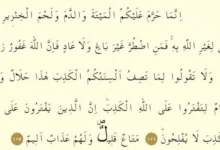 اِنَّمَا حَرَّمَ عَلَيْكُمُ الْمَيْتَةَ وَالدَّمَ وَلَحْمَ الْخِنْزِيرِ
لِغَيْرِ اللّٰهِ بِهٖۚ فَمَنِ اضْطُرَّ غَيْرَ بَاغٍ وَلَا عَادٍ فَاِنَّ اللّٰهَ غَفُورٌ
وَلَا تَقُولُوا لِمَا تَصِفُ اَلْسِنَتُكُمُ الْكَذِبَ هٰذَا حَلَالٌ
لِتَفْتَرُوا عَلَى اللّٰهِ الْكَذِبَۜ اِنَّ الَّذِينَ يَفْتَرُونَ عَلَى
الْكَذِبَ لَا يُفْلِحُونَۜ ﴿١١٦﴾ مَتَاعٌ قَلِيلٌۖ وَلَهُمْ عَذَابٌ اَلِيمٌ ﴿١١٧﴾